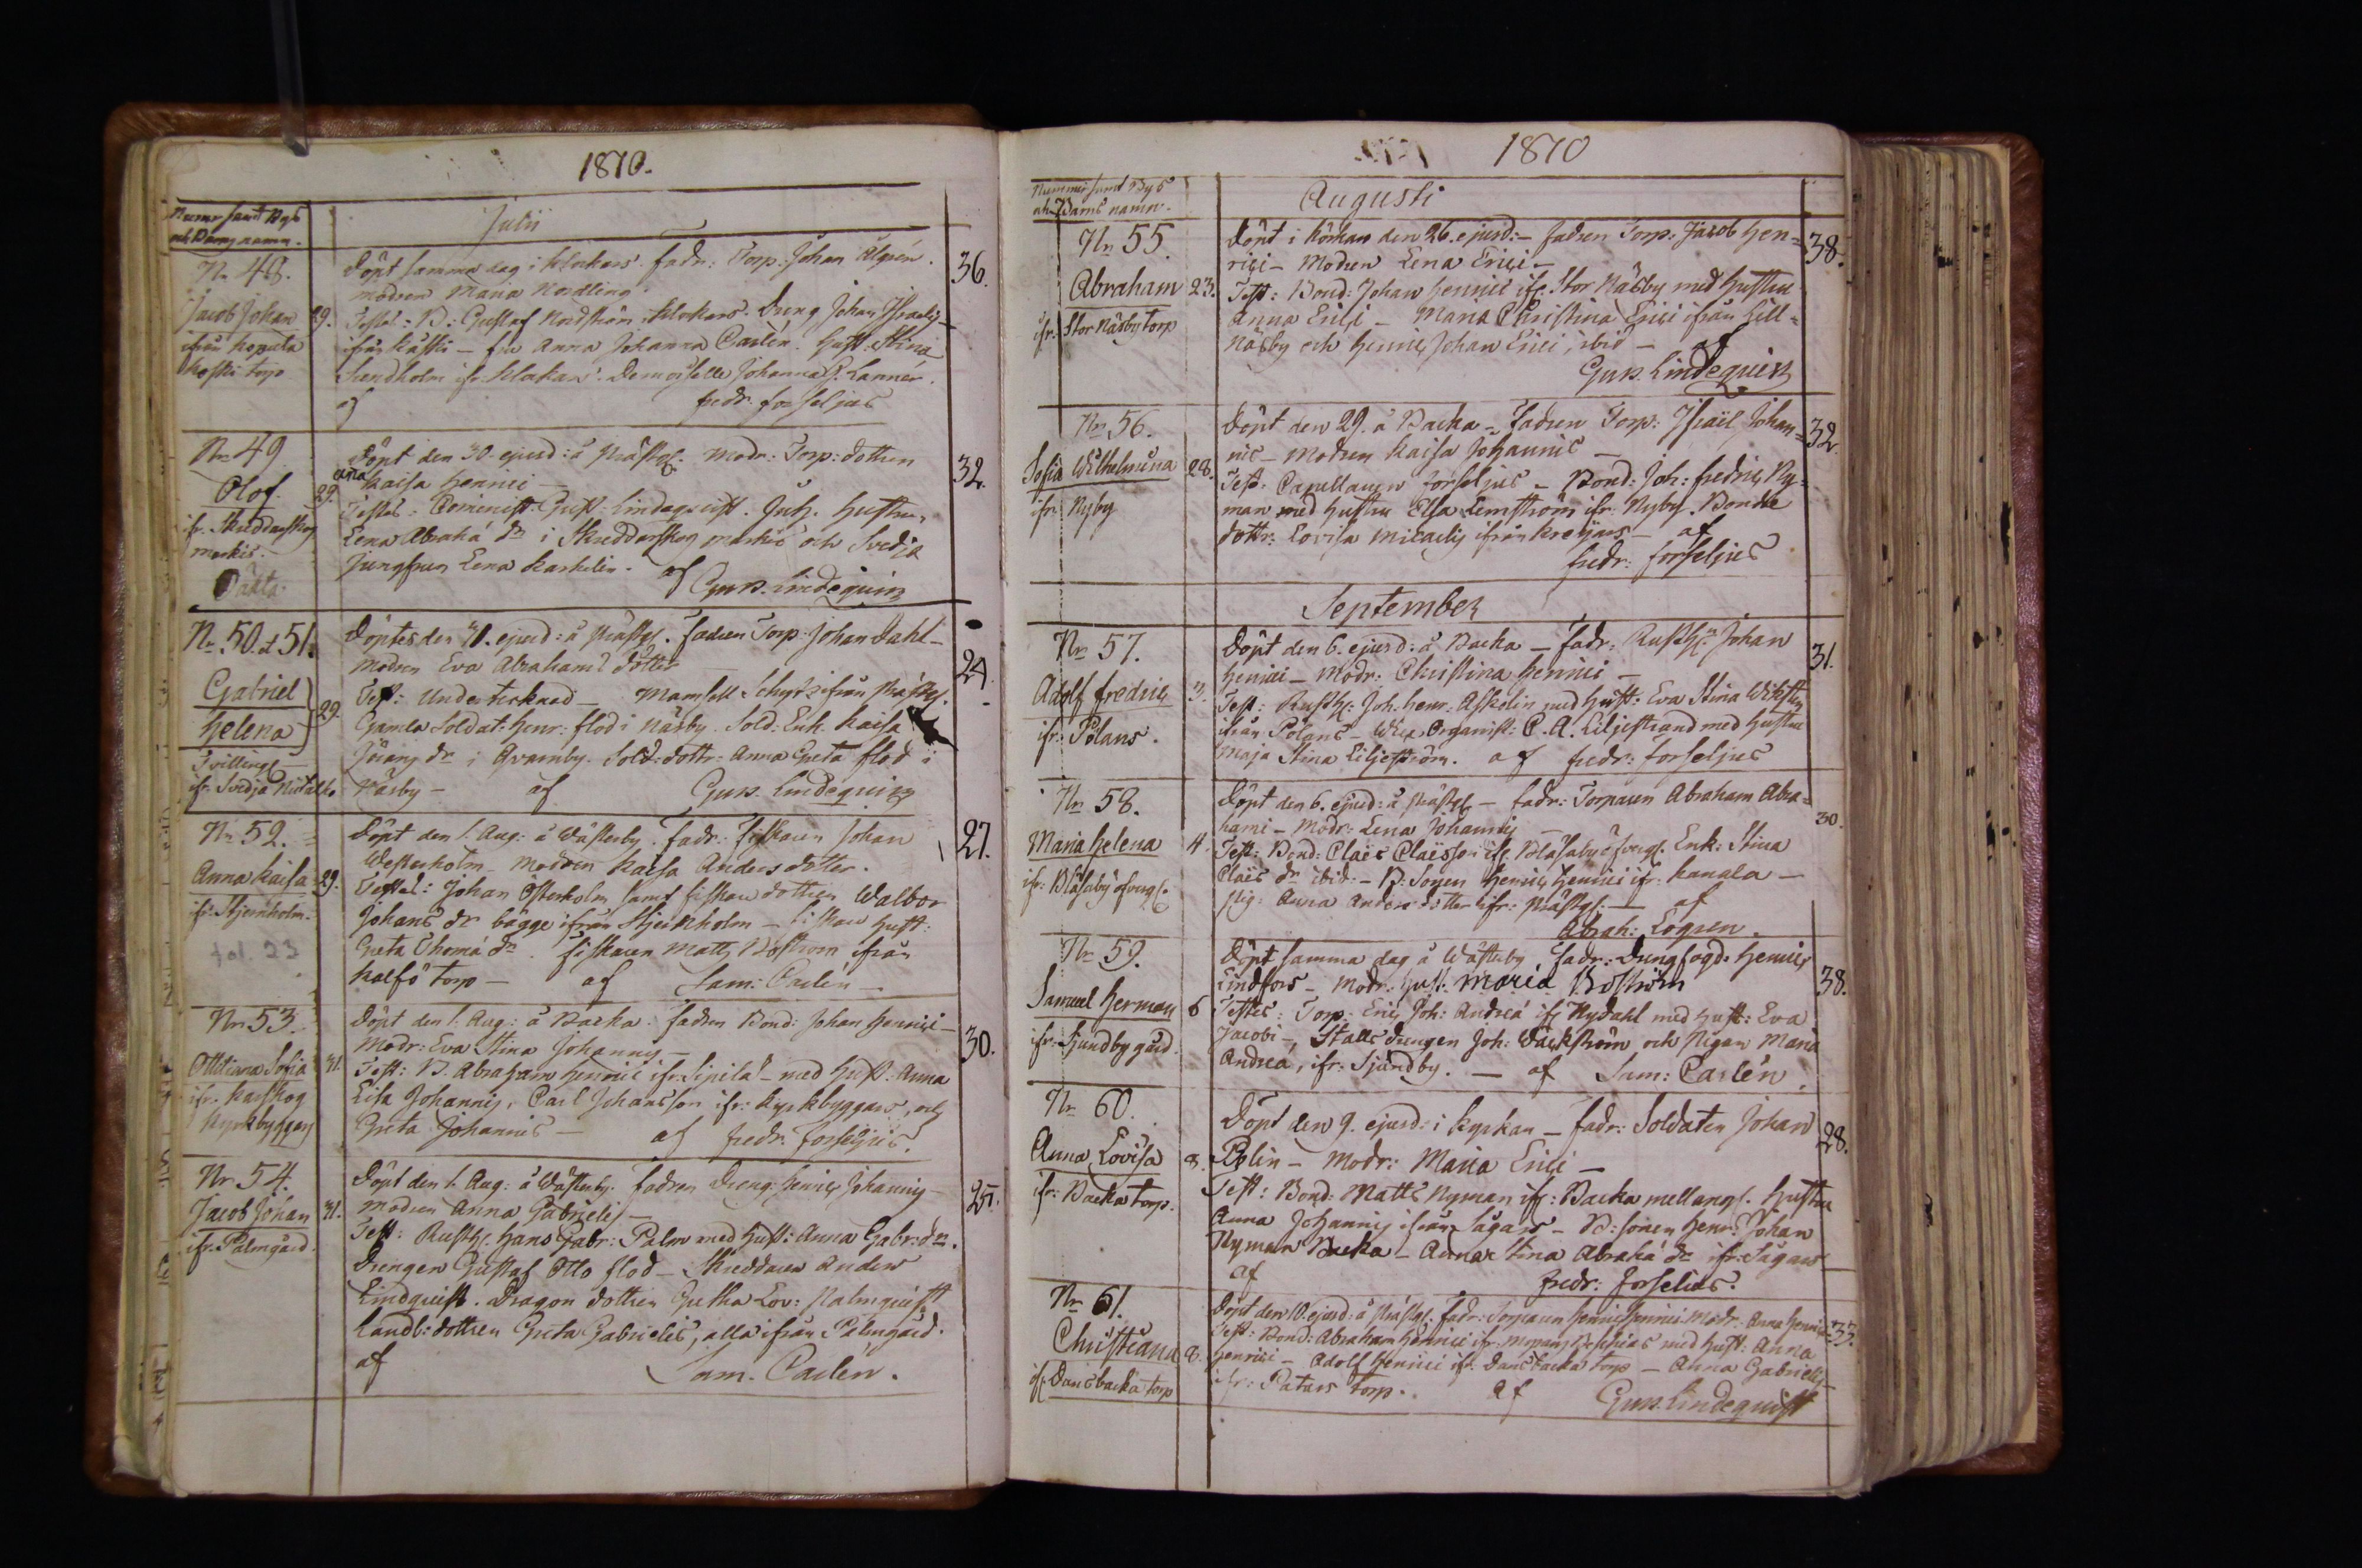 1810.
Numer samt Bys
och Barns namn.
Julii
Nr 48.
Jacob Johan
ifrån
torp
29.
Döpt samma dag i klockars. fadr: Torp: Johan Algrén.
modren Maria Nordling.
Testes: B: Gustaf Nordström, klockars. Dreng Johan
ifrån – fru Anna Johanna Carlén. Hust: Stina
Sundholm ifr: klockars. Demoiselle Johanna
af fredr: forseljus
36.
Nr 49
Olof.
ifr. Skreddarskog
Oäkta.
29.
Döpt den 30. ejusd: å Prästg. Modr: Torp: dottren
Kaisa Henrici
Testes: Gust: Lindequist. Hustru
Lena Abrahá dr i Skreddarskog och Svedja
Jungfrun Lena af Gus. Lindequist
32.
Nr 50. & 51.
Gabriel
Helena
Tvillingar
ifr. Svedja
29.
Döptes den 31. ejusd: å Prästg. fadren Torp: Johan Dahl –
Modren Eva Abrahams dotter
Test: Undertecknad – Mamsell ifrån Prästg.
Gamla Soldat: Henr: flod i Näsby. Sold: Enk. Kaisa
Jörans dr i Qvarnby. Sold: dottr: Anna Greta flod i
Näsby – af Gus. Lindequist
24.
Nr 52.
Anna Kaisa
ifr: Stjernholm.
fol. 23
29.
Döpt den 1. Aug: å Wästerby. fadr: fiskaren Johan
Westerholm modren Kaisa Anders dotter.
Testes: Johan Österholm samt fiskare dottren Walbor
Johans dr bägge ifrån Stjernholm – fiskare Hust:
Greta Thomá dr. fiskaren Matts Boström ifrån
Kalfö torp – af Sam: Carlén –
27.
Nr 53.
Ottiliana Sofia
ifr. Karskog
Kyrkbyggars
31.
Döpt den 1. Aug: å Backa: fadren Bond: Johan Henrici –
Modr: Eva Stina Johannis –
Test: B. Abraham Henrici ifr. Sipilä – med Hust: Anna
Lisa Johannis, Carl Johansson ifr: Kyrkbyggars, och
Greta Johannis – af fredr. forseljus.
30.
Nr 54.
Jacob Johan
ifr. Palmgård.
31.
Döpt den 1. Aug: å Wästerby. fadren Dreng: Henric Johannis –
Modren Anna Gabrielis –
Test: Rusth: Hans Gabr: Palm med Hust: Anna Gabr: dr.
Drengen Gustaf Otto flod – Skreddaren Anders
Lindquist. Dragon dottren Gretha Lov: Malmquist
Landb: dottren Greta Gabrielis, alla ifrån Palmgård.
af Sam. Carlén.
25.
1810
Nummer samt Bys
och Barns namn.
Augusti
Nr 55.
Abraham
ifr: Stor Näsby torp
23.
Döpt i Körkan den 26. ejusd: – fadren Torp: Jacob Hen=
rici – Modren Lena Erici –
Test: Bond: Johan Henrici ifr Stor Näsby med Hustru
Anna Erici – Maria Christina Erici ifrån Lill=
näsby och Henric Johan Erici, ibid – af
Gus. Lindequist
38.
Nr 56.
Sofia Wilhelmina
ifr Nyby
28.
Döpt den 29. å Backa – fadren Torp: Israël Johan=
nis – Modren Kaisa Johannis –
Test: Capellanen forseljus – Bond: Joh: fredric Ny=
man med Hustru Ulla Lemström ifr: Nyby. Bonde
dottr: Lovisa Micaelis ifrån – af
fredr: forseljus
32.
September
Nr 57.
Adolf fredric
ifr: Polans.
3.
Döpt den 6. ejusd: å Backa – fadr: Rusth: Johan
Henrici – Modr: Christina Henrici –
Test: Rusth: Joh: Henr: Askolin med Hust: Eva Stina
ifrån Polans – Organist: C. A. Liljestrand med Hustru
Maja Stina Liljeström. af fredr: forseljus
31.
Nr 58.
Maria Helena
ifr: Bläsaby öfvergl.
4.
Döpt den 6. ejusd: å Prästg – fadr: Torparen Abraham Abra=
hami – Modr: Lena Johannis
Test: Bond: Claës Claësson ifr. Bläsaby öfvergl. Enk: Stina
Claës dr ibid: – B: Sonen Henric Henrici ifr: Kanala –
Pig: Anna Anders dotter ifr: Prästg: – af
Abrah: Logren.
30.
Nr 59.
Samuel Herman
ifr: Sundby gård
6
Döpt samma dag å Wästerby, fadr: Drengfogd: Henric
Lindfors – Modr: Hust: Maria Boström
Testes: Torp: Eric Joh: Andreá ifr Nydahl med Hust: Eva
Jacobi –, Stalls drengen Joh: Wäckström och Pigan Maria
Andreá, ifr: Sjundby. – af Sam: Carlén.
38.
Nr 60.
Anna Lovisa
ifr: Backa torp.
8.
Döpt den 9. ejusd: i kyrkan – fadr: Soldaten Johan
Polin – Modr: Maria Erici –
Test: Bond: Matts Nyman ifr: Backa mellang. Hustru
Anna Johannis ifrån Sågars – B: sonen Henr: Johan
Nyman Backa – Anna Stina Abrahá dr ifr: Sågars
af fredr: forselius.
28.
Nr 61.
Christiana
ifr Dansbacka torp
8.
Döpt den 10. ejusd: å Prästg: fadr: Torparen Henric Henrici Modr: Anna Henrici
Test: Bond: Abraham Henrici ifr. med Hust: Anna
Henrici – Adolf Henrici ifr: Dansbacka torp – Anna Gabrielis –
ifr: Patars torp. af Gus. Lindequist
33.